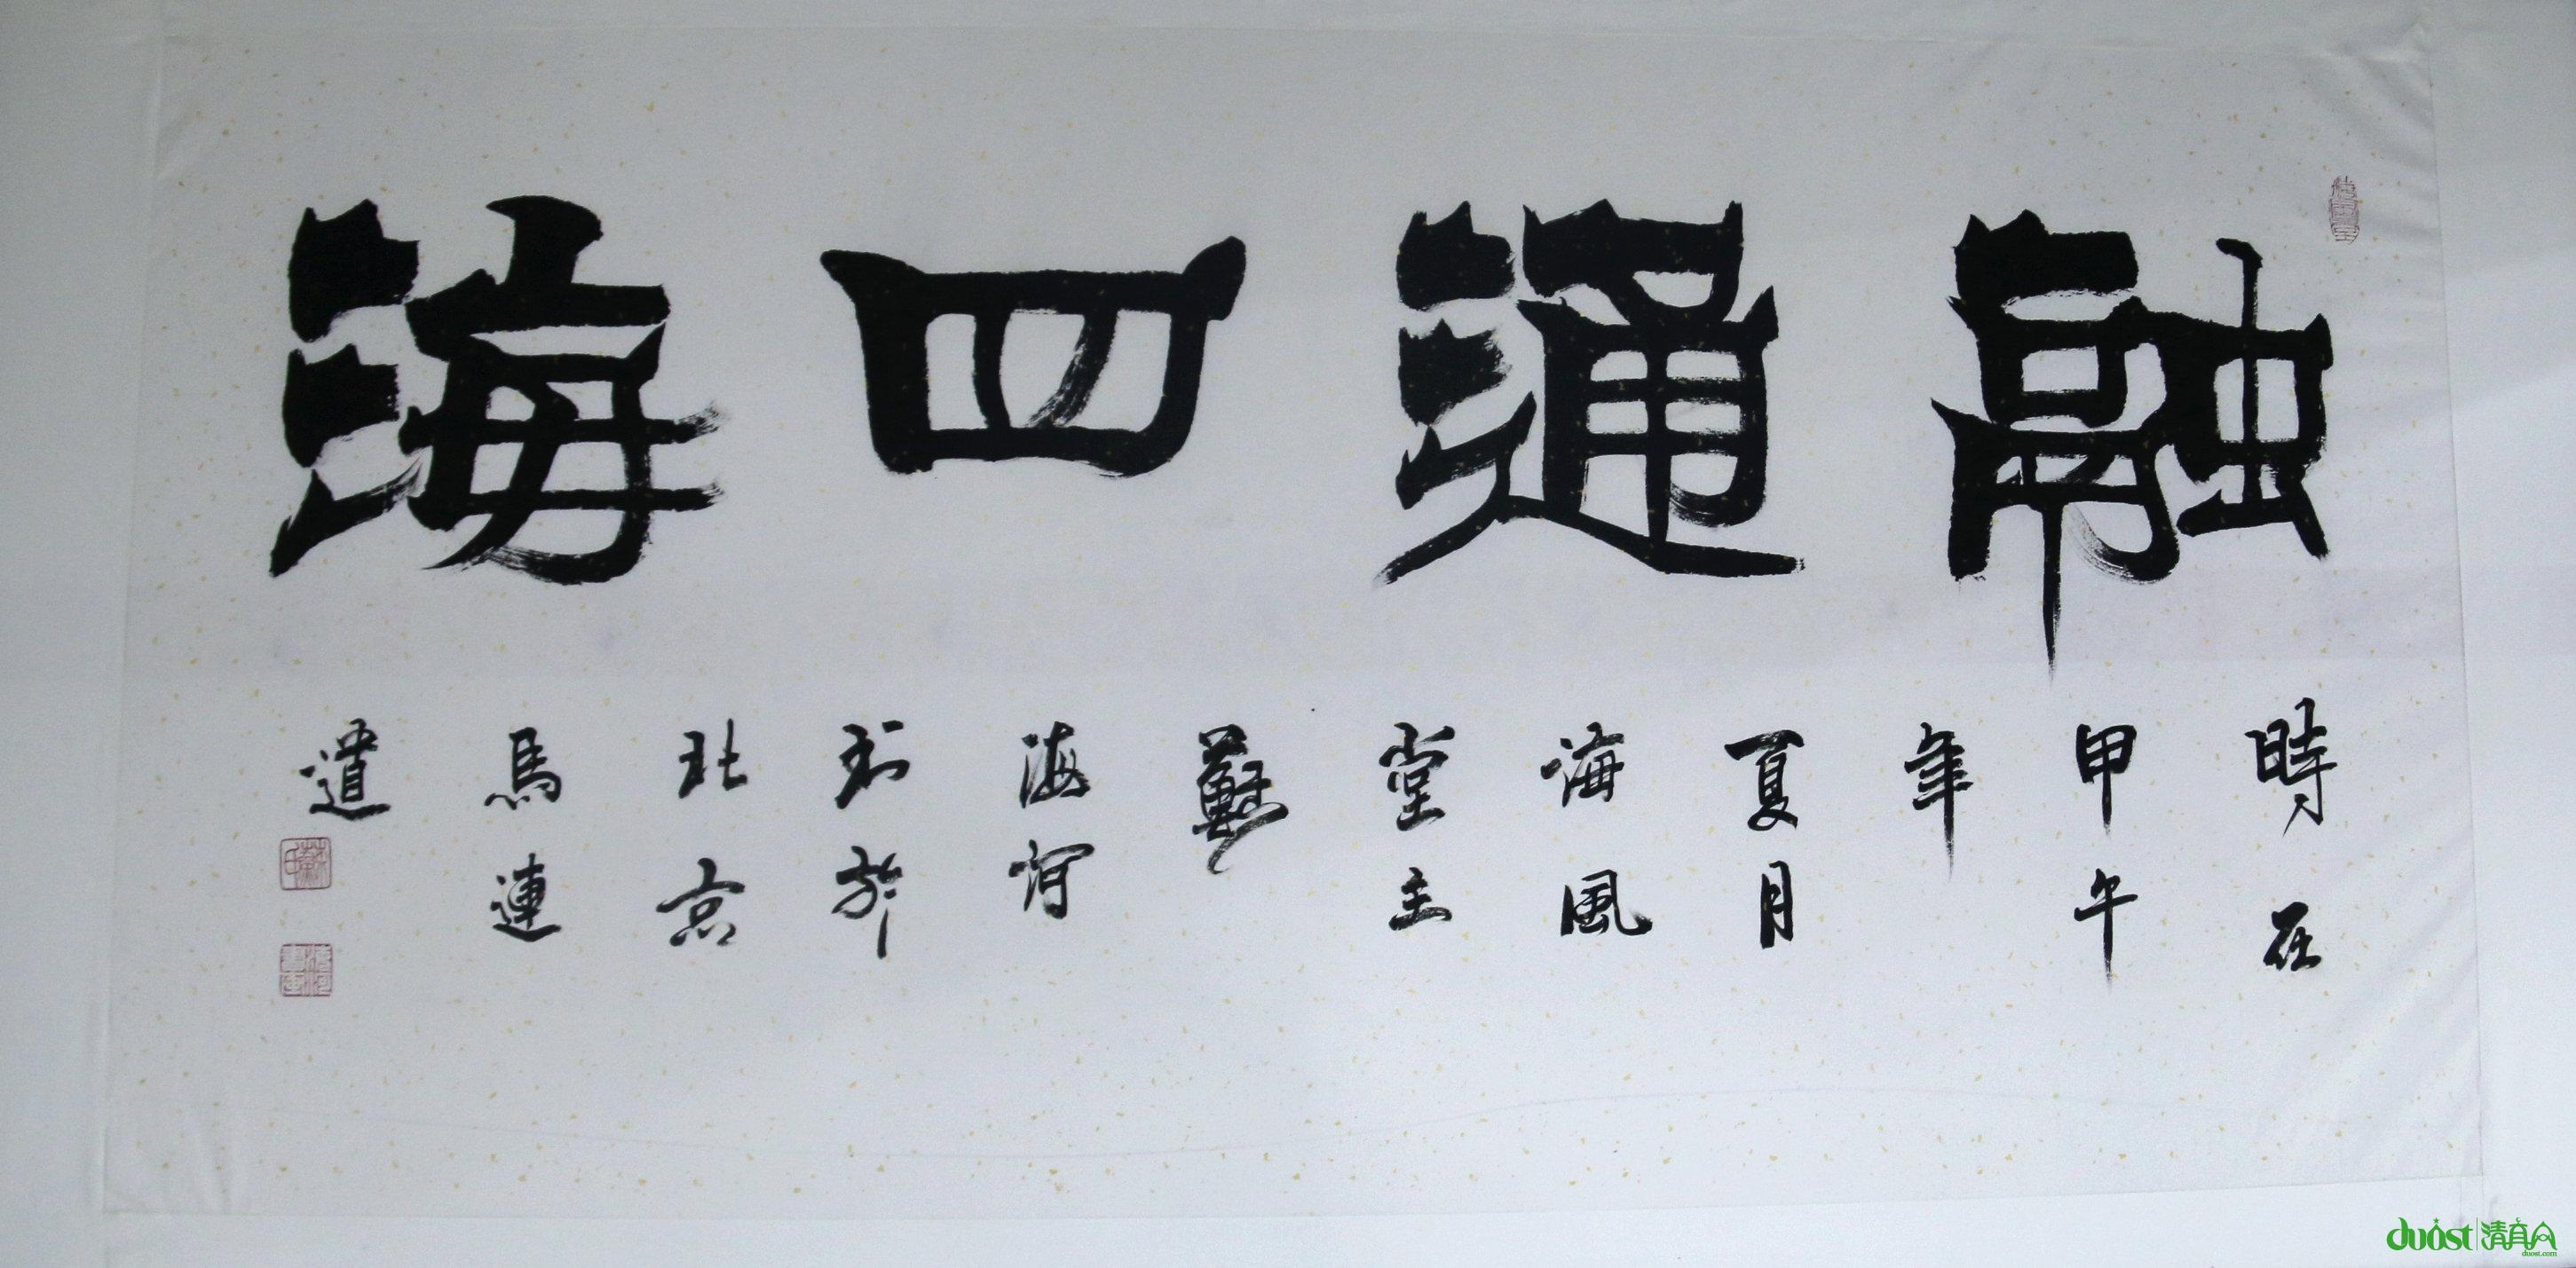 融通四海
時在
甲午
年
夏月
海風
堂主
蘇
海河
於
北京
馬連
道
duost 清真人
duost.com